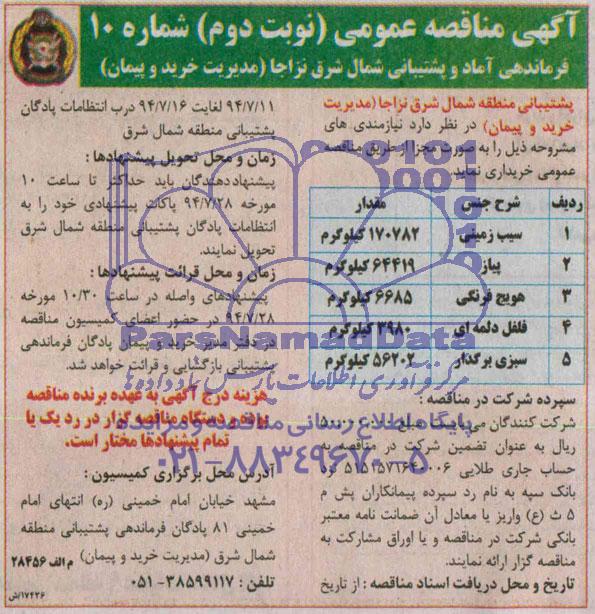 آگهی مناقصه عمومی (نوبت دوم) شماره ۱۰
فرماندهی آماد و پشتیبانی شمال شرق نزاجا (مدیریت خرید و پیمان)
پشتیبانی منطقه شمال شرق نزاجا (مدیریت
خرید و پیمان) در نظر دارد نیازمندی های
مشروحه ذیل را به صورت مجزا از طریق مناقصه
عمومی خریداری نماید.
ردیف شرح جنس مقدار
۱ سیب زمینی ۱۷۰۷۸۲ کیلوگرم
۲ پیاز ۶۴۴۱۹ کیلوگرم
۳ هویج فرنگی ۶۶۸۵ کیلوگرم
۴ فلفل دلمه ای ۳۹۸۰ کیلوگرم
۵ سبزی برگدار ۵۶۲۰۲ کیلوگرم
سپرده شرکت در مناقصه :
شرکت کنندگان می بایست مبلغ
ریال به عنوان تضمین شرکت در مناقصه به
حساب جاری طلایی
بانک سپه به نام رد سپرده پیمانکاران پش م
۵ ث (ع) واریز یا معادل آن ضمانت نامه معتبر
بانکی شرکت در مناقصه و یا اوراق مشارکت به
مناقصه گزار ارائه نمایند.
تاریخ و محل دریافت اسناد مناقصه : از تاریخ
۹۴/۷/۱۱ لغایت ۹۴/۷/۱۶ درب انتظامات پادگان
پشتیبانی منطقه شمال شرق
زمان و محل تحویل پیشنهادها :
پیشنهاددهندگان باید حداکثر تا ساعت ۱۰
مورخه ۹۴/۷/۲۸ پاکات پیشنهادی خود را به
انتظامات پادگان پشتیبانی منطقه شمال شرق
تحویل نمایند.
زمان و محل قرائت پیشنهادها :
پیشنهادهای واصله در ساعت ۱۰/۳۰ مورخه
۹۴/۷/۲۸ در حضور اعضای کمیسیون مناقصه
در دفتر مدیر خرید و پیمان پادگان فرماندهی
پشتیبانی بازگشایی و قرائت خواهد شد.
هزینه درج آگهی به عهده برنده مناقصه
بوده و دستگاه مناقصه گزار در رد یک یا
تمام پیشنهادها مختار است.
آدرس محل برگزاری کمیسیون :
مشهد خیابان امام خمینی (ره) انتهای امام
خمینی ۸۱ پادگان فرماندهی پشتیبانی منطقه
شمال شرق (مدیریت خرید و پیمان)
م الف ۲۸۴۵۶
تلفن : ۳۸۵۹۹۱۱۷-۰۵۱
۱۷۴۲۶/ش
ParsNamadData
مرکز فرآوری اطلاعات پارس نماد داده‌ها
پایگاه اطلاع رسانی مناقصه و مزایده
۰۲۱-۸۸۳۴۹۶۷۰-۵